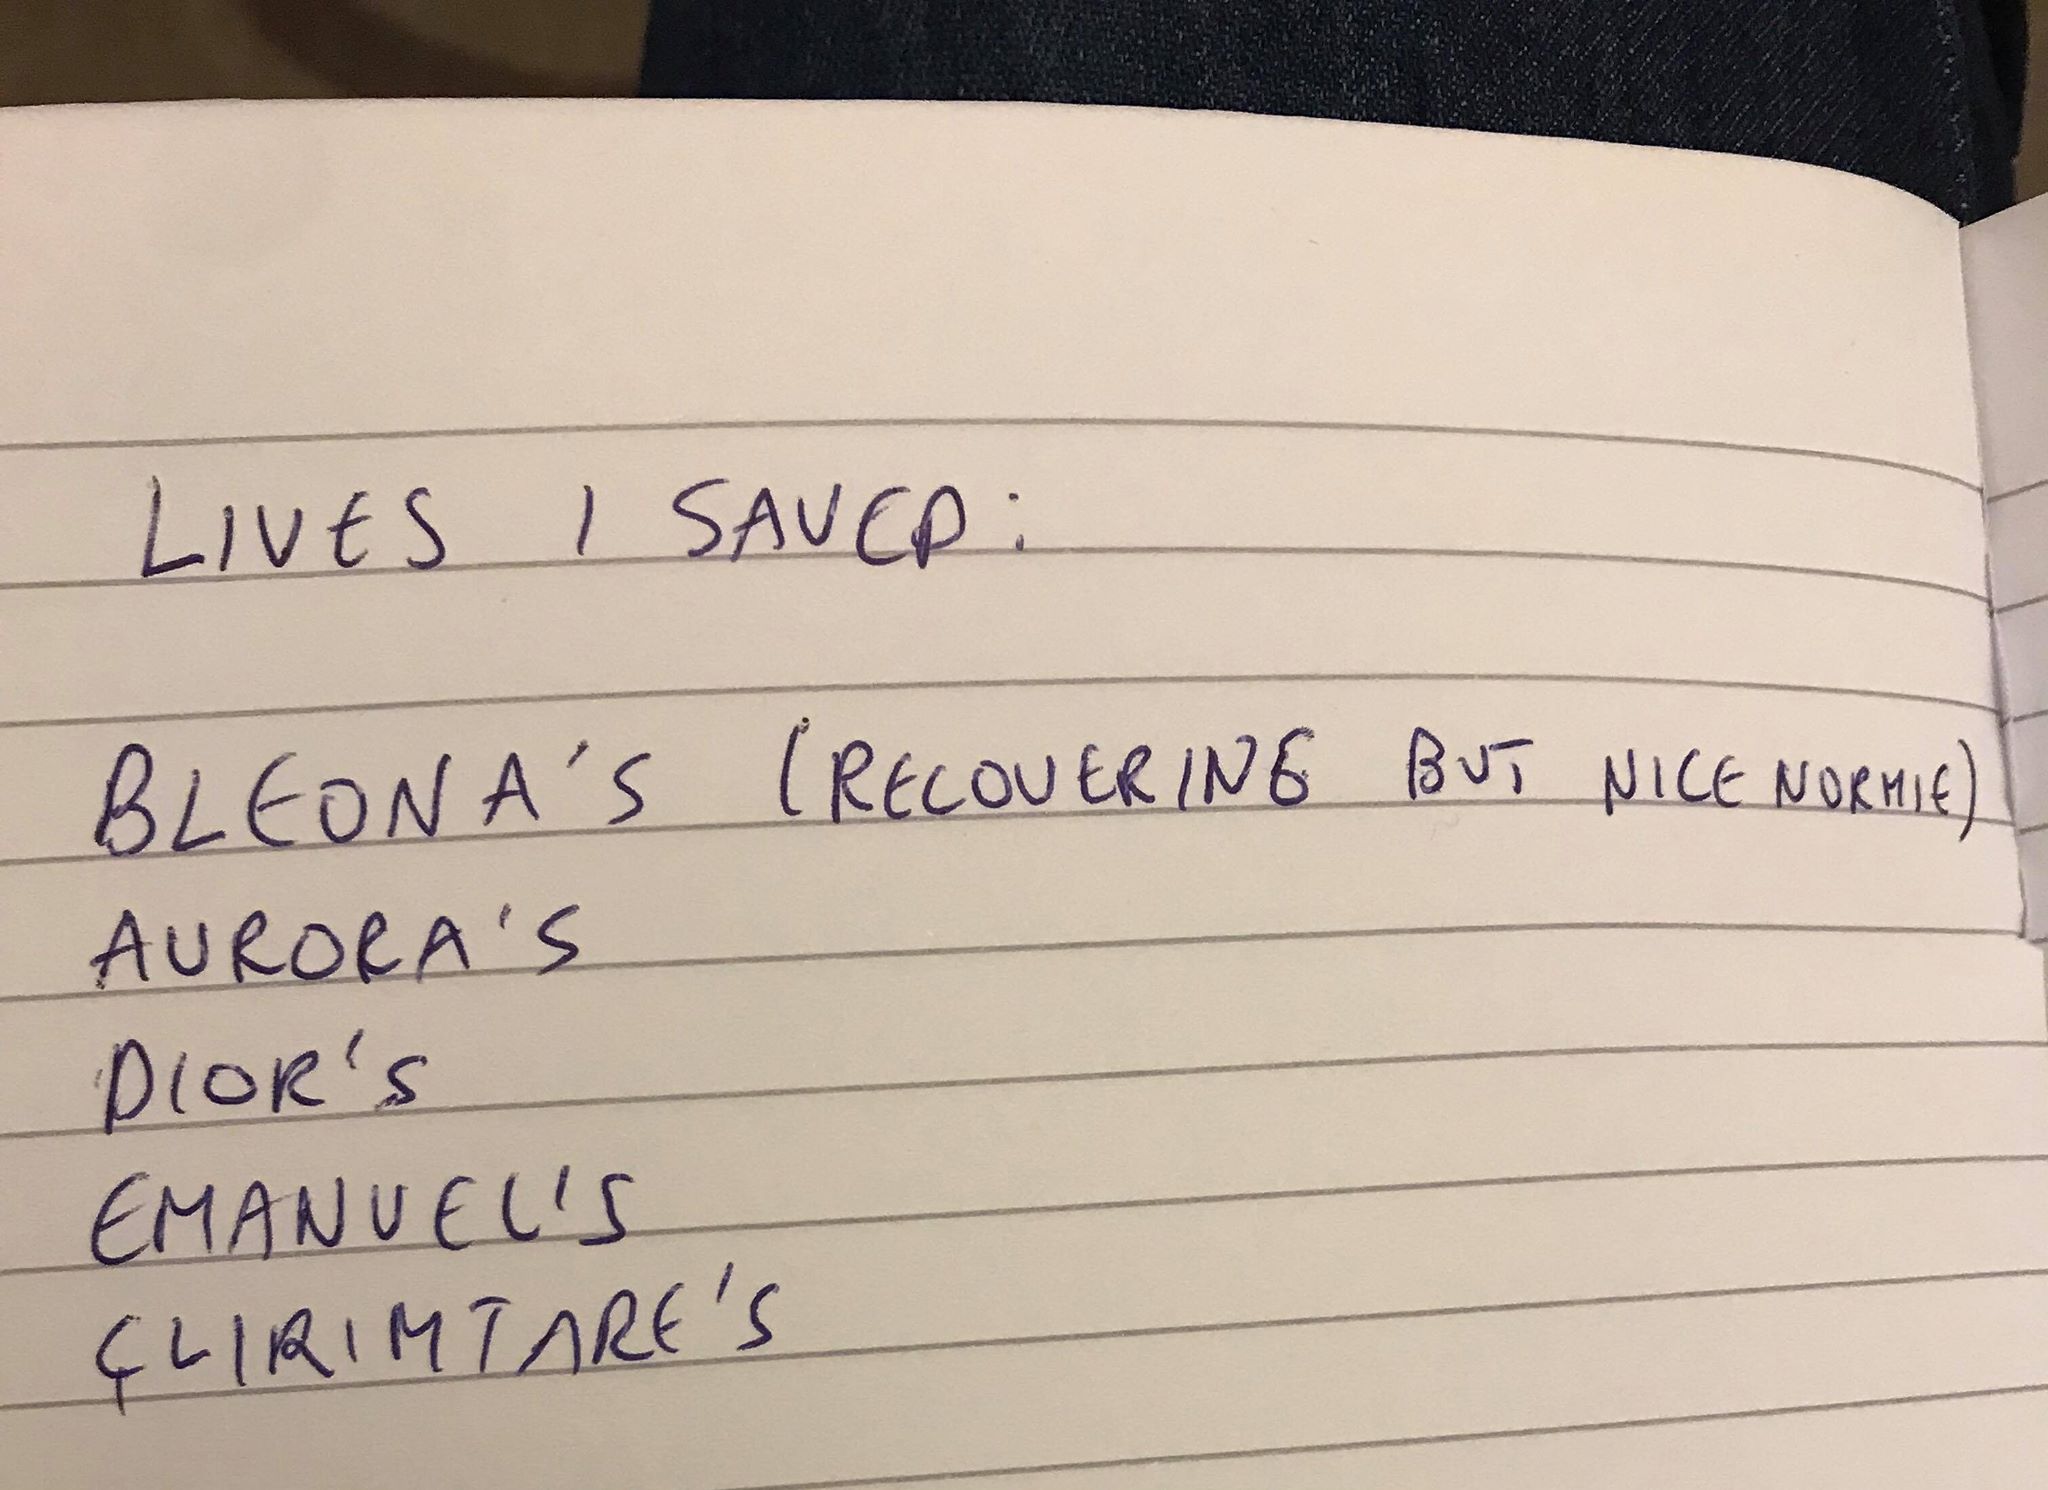 LIVES I SAVED:
BLEONA'S (RECOVERING BUT NICE NORMIE)
AURORA'S
DIOR'S
EMANUEL'S
ÇLIRIMTARE'S